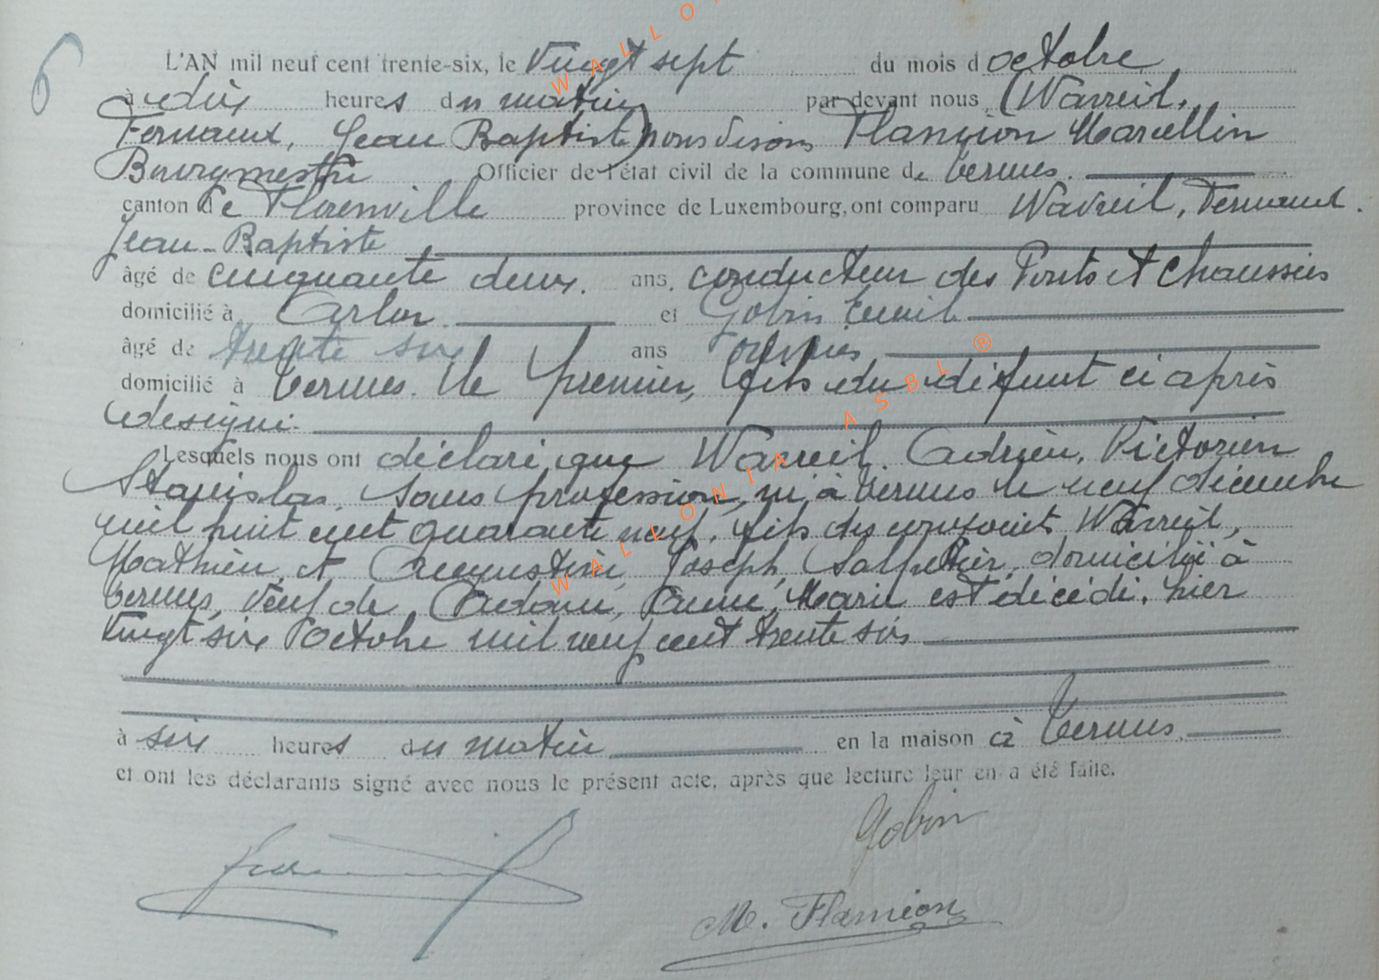 6
L'AN mil neuf cent trente-six, le Vingt sept du mois d'octobre
à dix heures du matin par devant nous (Wavreil,
Fernand, Jean Baptiste) nous disons Flamion Marcellin
Bourgmestre Officier de l'état civil de la commune de Termes.
canton de Florenville province de Luxembourg, ont comparu Wavreil, Fernand.
Jean-Baptiste
âgé de cinquante deux. ans, conducteur des Ponts et Chaussées
domicilié à Arlon et Gobin Emile
âgé de trente six ans
domicilié à Termes. Le premier, fils du défunt ci après
désigné.
Lesquels nous ont déclaré que Wavreil. Adrien, Victorien
Stanislas, sans profession, né à Termes le neuf décembre
mil huit cent quarante neuf, fils des conjoints Wavreil,
Mathieu et Augustine, Joseph, domicilié à
Termes, veuf de Marie est décédé, hier
vingt six octobre mil neuf cent trente six
à six heures du matin en la maison à Termes.
et ont les déclarants signé avec nous le présent acte, après que lecture leur en a été faite.
Gobin
M. Flamion
WALLONIA ASBL ®
WALLO